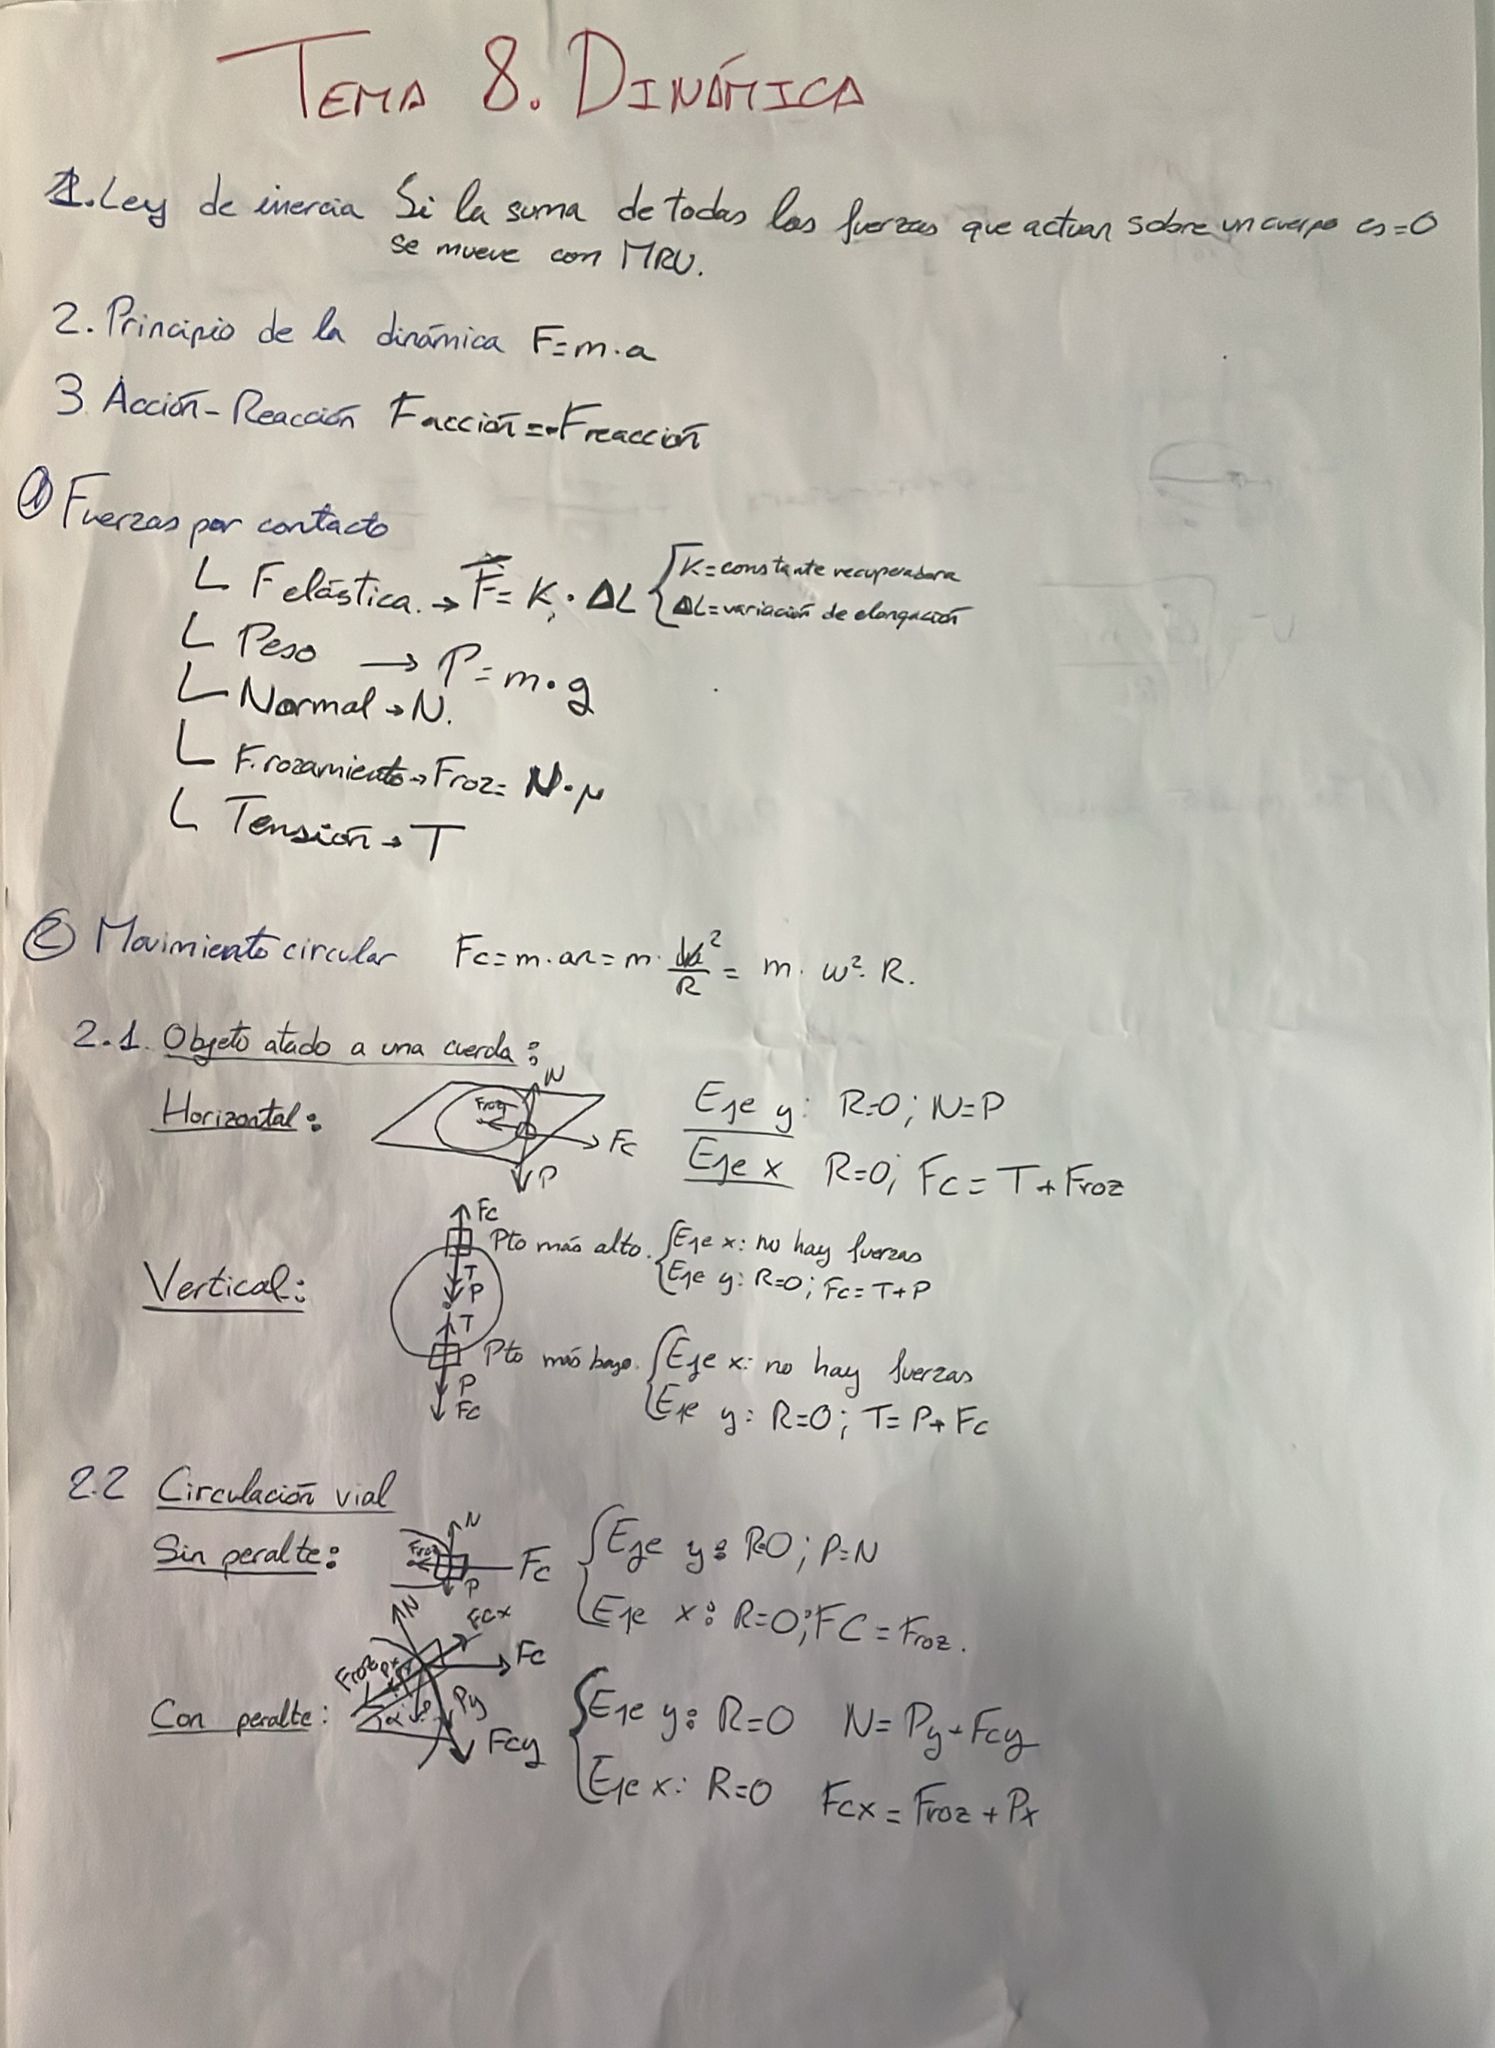 TEMA 8. DINÁMICA
1. Ley de inercia Si la suma de todas las fuerzas que actuan sobre un cuerpo es=0
se mueve con MRU.
2. Principio de la dinámica F=m·a
3 Acción-Reacción Facción=-Freacción
① Fuerzas por contacto
F elástica. → F= K · ΔL { K=constante recuperadora
ΔL=variación de elongación
Peso → P=m·g
Normal → N.
F. rozamiento → Froz= N·μ
Tensión → T
② Movimiento circular Fc=m·an=m· /R = m· w²· R.
2.1. Objeto atado a una cuerda:
Horizontal: N Froz Fc P Eje y: R=0; N=P
Eje x R=0; Fc=T+Froz
Vertical:
Fc T P Pto más alto. { Eje x: no hay fuerzas
Eje y: R=0; Fc=T+P
T P Fc Pto más bajo. { Eje x: no hay fuerzas
Eje y: R=0; T=P+Fc
2.2 Circulación vial
Sin peralte: N Froz P Fc { Eje y: R=0; P=N
Eje x: R=0; FC=Froz.
Con peralte: N Fcx Fc Froz Px α P Py Fcy { Eje y: R=0 N=Py+Fcy
Eje x: R=0 Fcx=Froz+Px